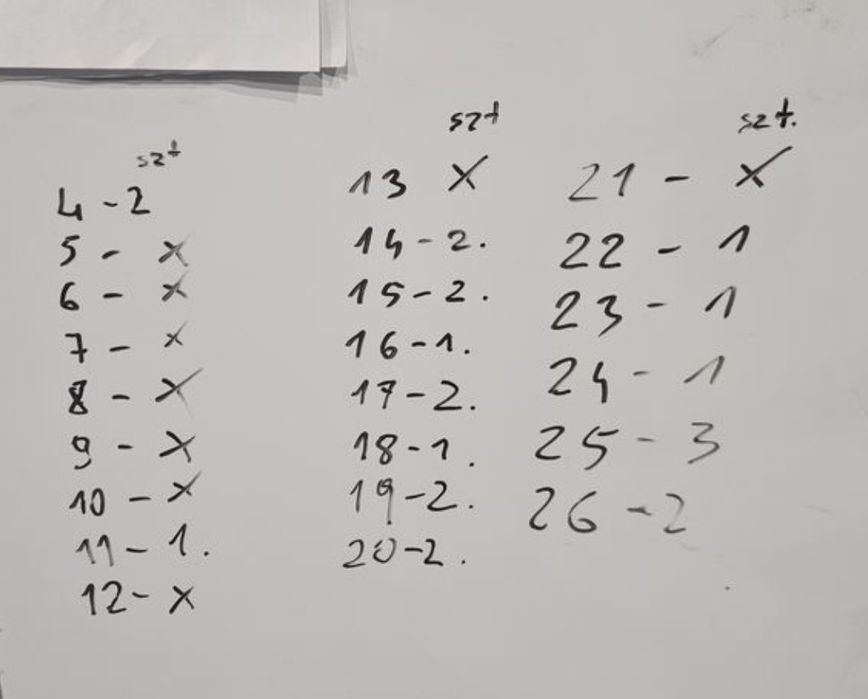 szt
4 - 2
5 - x
6 - x
7 - x
8 - x
9 - x
10 - x
11 - 1.
12 - x
szt
13 x
14 - 2.
15 - 2.
16 - 1.
17 - 2.
18 - 1.
19 - 2.
20 - 2.
szt.
21 - x
22 - 1
23 - 1
24 - 1
25 - 3
26 - 2